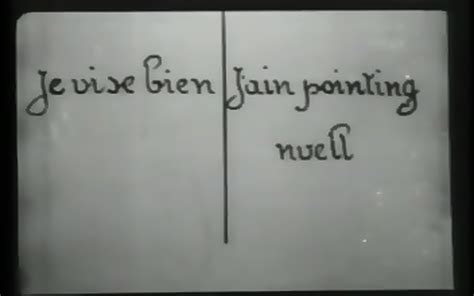 Je vise bien
J'ain pointing
nuell